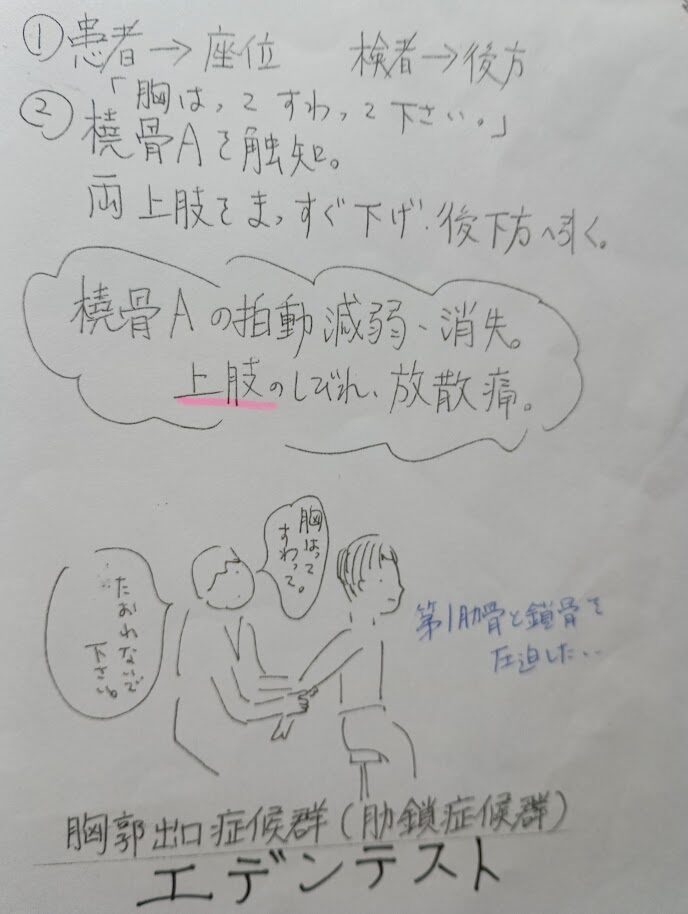 ①患者→座位　検者→後方
「胸はって すわって下さい。」
②橈骨Aを触知。
両上肢をまっすぐ下げ・後下方へ引く。
橈骨Aの拍動減弱、消失。
上肢のしびれ、放散痛。
胸はって
すわって。
たおれないで
下さい。
第1肋骨と鎖骨を
圧迫したい..
胸郭出口症候群(肋鎖症候群)
エデンテスト